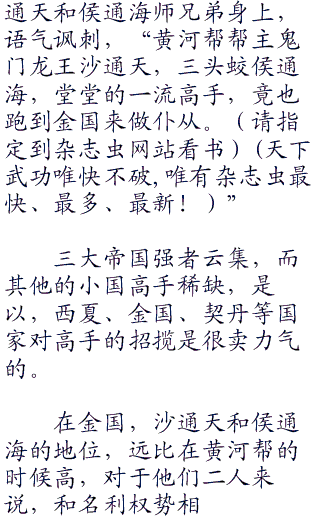 通天和侯通海师兄弟身上，
语气讽刺，“黄河帮帮主鬼
门龙王沙通天，三头蛟侯通
海，堂堂的一流高手，竟也
跑到金国来做仆从。（请指
定到杂志虫网站看书）(天下
武功唯快不破,唯有杂志虫最
快、最多、最新！）”
三大帝国强者云集，而
其他的小国高手稀缺，是
以，西夏、金国、契丹等国
家对高手的招揽是很卖力气
的。
在金国，沙通天和侯通
海的地位，远比在黄河帮的
时候高，对于他们二人来
说，和名利权势相